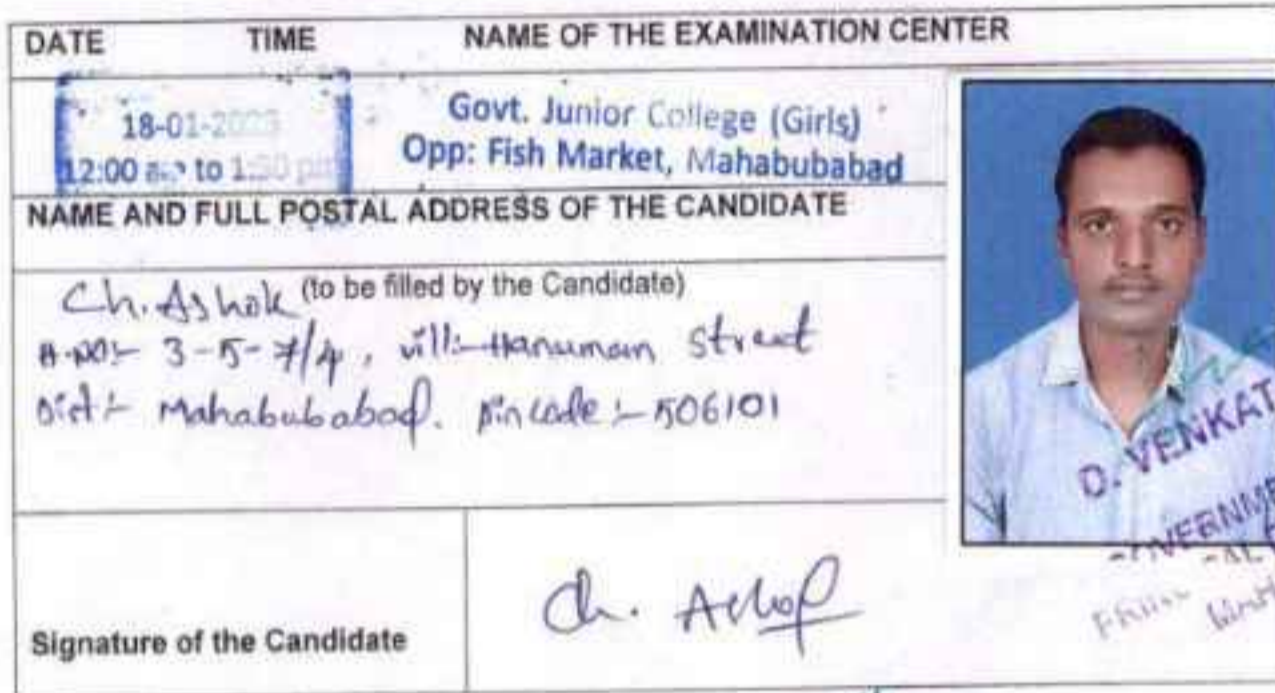 DATE TIME NAME OF THE EXAMINATION CENTER
18-01-2023 Govt. Junior College (Girls)
12:00 to 1:30 pm Opp: Fish Market, Mahabubabad
NAME AND FULL POSTAL ADDRESS OF THE CANDIDATE
Ch. Ashok (to be filled by the Candidate)
H.NO:- 3-5-7/4, vill:- Hanuman Street
Dist:- Mahabubabad. pincode:- 506101
D. VENKAT
Signature of the Candidate Ch. Ashok